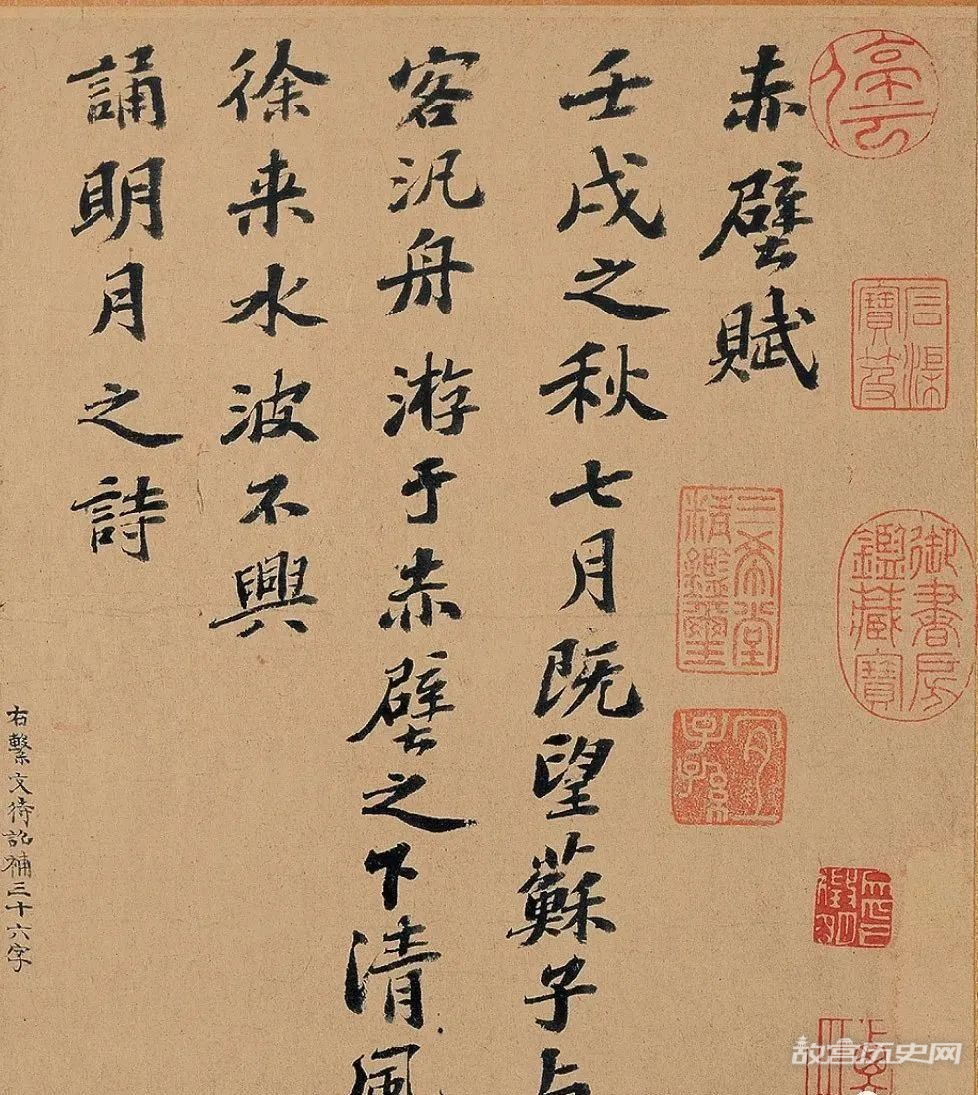 停雲
石渠寶笈
御書房鑑藏寶
赤壁賦
三希堂精鑑璽
宜子孫
壬戌之秋七月既望蘇子与
客汎舟游于赤壁之下清風
徐来水波不興
誦明月之詩
右繫文待詔補三十六字
故宫历史网